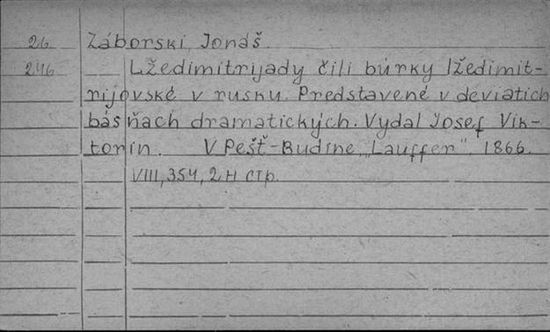 26 Záborski, Jonáš.
246 Lžedimitrijady čili búrky lžedimit-
rijovské v rusku. Predstavené v deviatich
básňach dramatických. Vydal Josef Vik-
torin. V Pešť-Budíne, "Lauffer", 1866.
VIII, 354, 2 н стр.